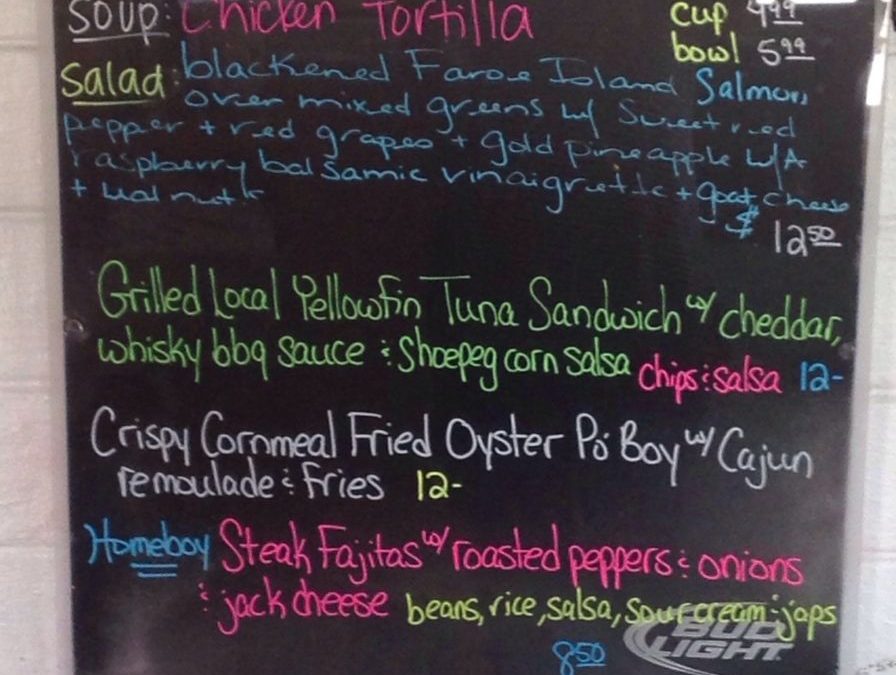 SOUP: Chicken Tortilla cup 4.99
bowl 5.99
Salad: blackened Faroe Island Salmon
over mixed greens w/ Sweet red
pepper + red grapes + gold pineapple w/ A
raspberry balsamic vinaigrette + goat cheese
+ walnuts $12.50
Grilled Local Yellowfin Tuna Sandwich w/ cheddar,
whisky bbq sauce & Shoepeg corn salsa chips & salsa 12-
Crispy Cornmeal Fried Oyster Po' Boy w/ Cajun
remoulade & fries 12-
Homeboy Steak Fajitas w/ roasted peppers & onions
& jack cheese beans, rice, salsa, sour cream & japs
8.50
BUD
LIGHT